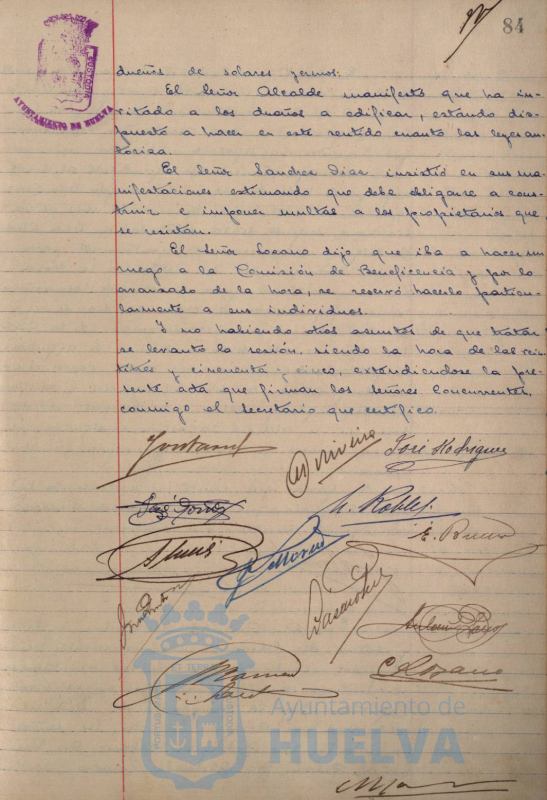 84
AYUNTAMIENTO DE HUELVA
CUSTODIA
dueños de solares yermos:
El Señor Alcalde manifestó que ha in-
vitado a los dueños a edificar, estando dis-
puesto a hacer en este sentido cuanto las leyes au-
toriza.
El Señor Sanchez Diaz insistió en sus ma-
nifestaciones estimando que debe obligarse a cons-
truir e imponer multas a los propietarios que
se resistan.
El Señor Lozano dijo que iba a hacer un
ruego a la Comisión de Beneficencia y por lo
avanzado de la hora, se reservó hacerlo particu-
larmente a sus individuos.
Y no habiendo otros asuntos de que tratar
se levantó la sesión, siendo la hora de las vein-
titrés y cincuenta y cinco, extendiéndose la pre-
sente acta que firman los señores concurrentes,
conmigo el secretario que certifico.
José Rodriguez
M. Robles
C Lozano
PORTUS
CUSTODIA
Ayuntamiento de
HUELVA